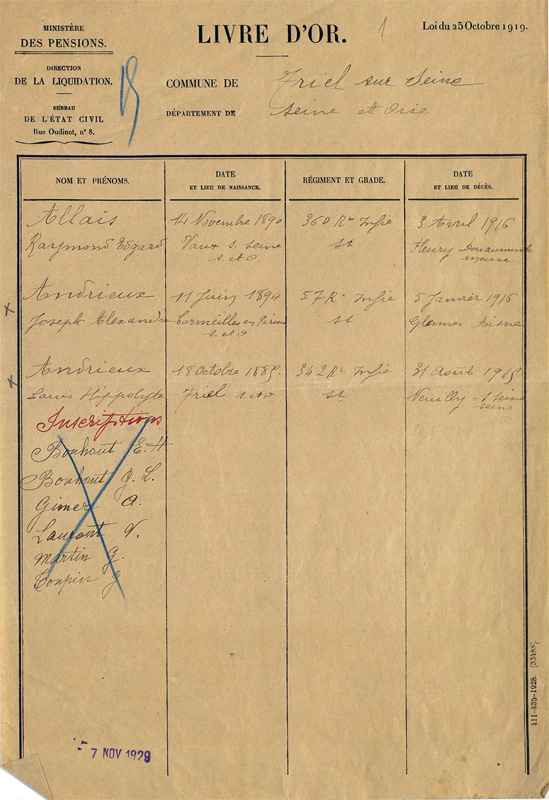 MINISTÈRE
DES PENSIONS.
DIRECTION
DE LA LIQUIDATION.
BUREAU
DE L'ÉTAT CIVIL
Rue Oudinot, n° 8.
LIVRE D'OR.
1
Loi du 25 Octobre 1919.
COMMUNE DE Triel sur Seine
DÉPARTEMENT DE Seine et Oise
NOM ET PRÉNOMS.
DATE
ET LIEU DE NAISSANCE.
RÉGIMENT ET GRADE.
DATE
ET LIEU DE DÉCÈS.
Allais 14 Novembre 1890 360 Rt Infie 3 Avril 1916
Raymond Edgard Vaux s. Seine st Fleury Douaumont
s. et O meuse
Andrieux 11 Juin 1894 57 Rt Infie 5 Janvier 1916
x
Joseph Alexandre Cormeilles en Parisis st Glennes Aisne
s. et O
Andrieux 18 Octobre 1885 342 Rt Infie 31 Août 1915
x
Louis Hippolyte Triel s et O st Neuilly s Seine
Seine
Inscriptions
Bonhout E. H
Bonhout G. L.
Gimer A.
Laurent V.
Martin G.
G
7 NOV 1929
411-435-1928. [33488]